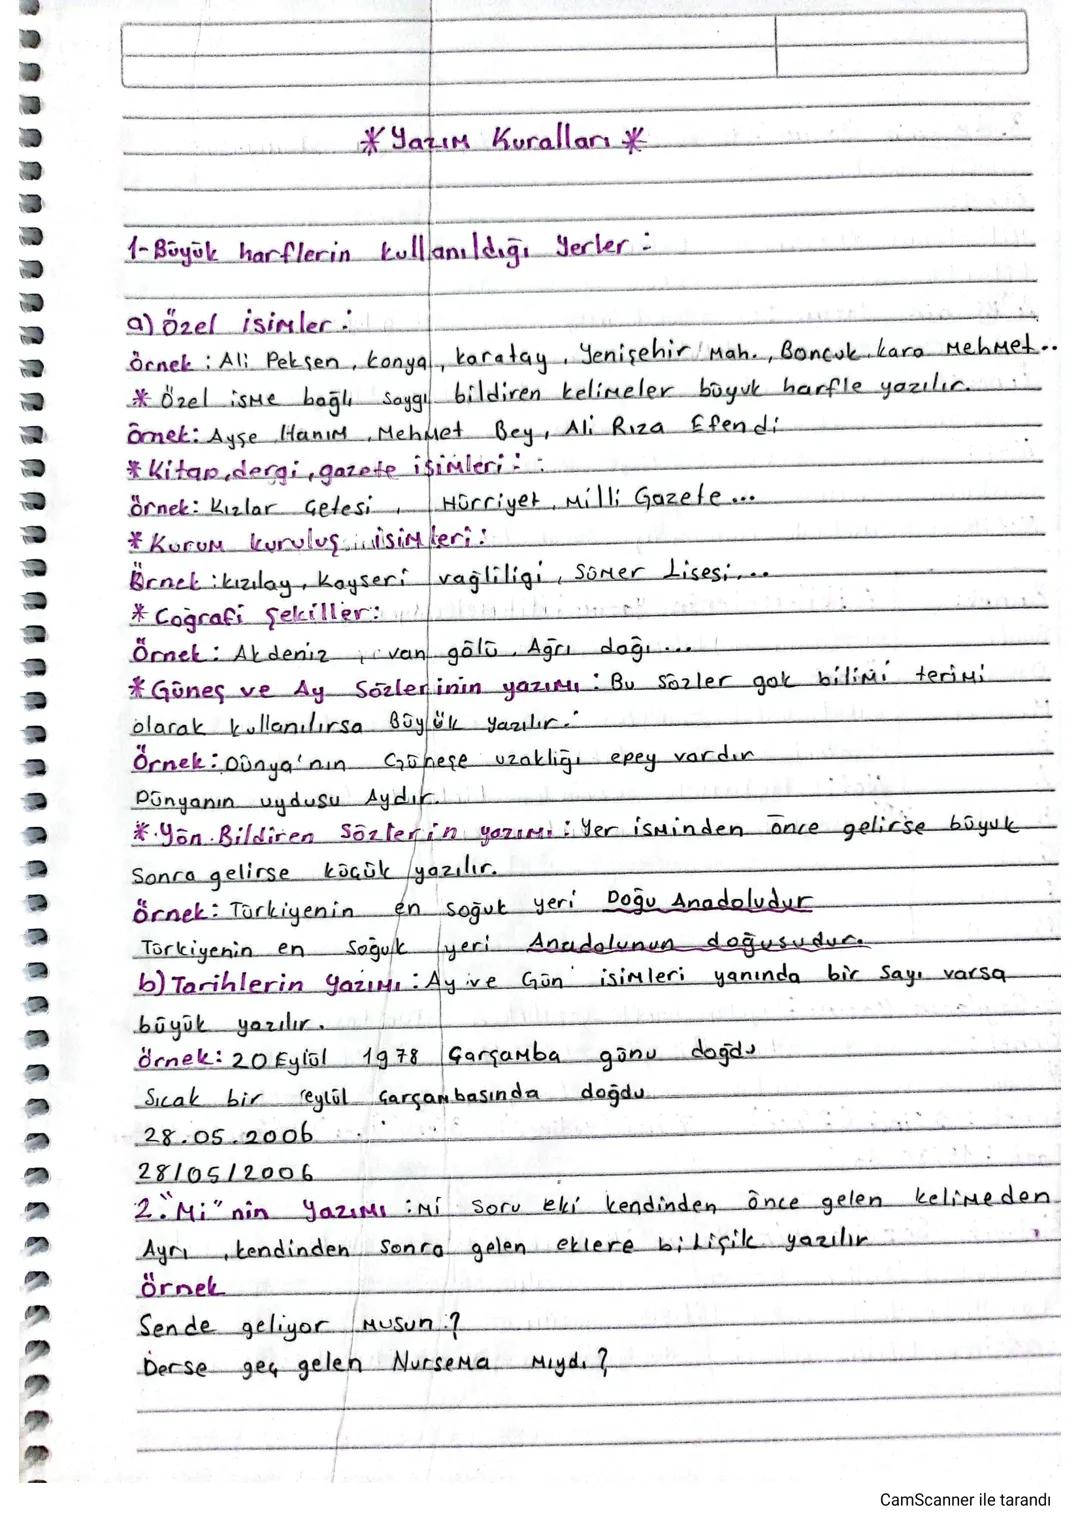 * Yazım Kuralları *
1- Büyük harflerin kullanıldığı Yerler :
a) Özel isimler :
Örnek : Ali Pekşen, Konya, Karatay, Yenişehir Mah., Boncuk, kara Mehmet..
* Özel isme bağlı saygı bildiren kelimeler büyük harfle yazılır.
Örnek: Ayşe Hanım, Mehmet Bey, Ali Rıza Efendi
* Kitap, dergi, gazete isimleri :
Örnek: Kızlar Çetesi, Hürriyet, Milli Gazete ...
* Kurum kuruluş isimleri :
Örnek : kızılay, Kayseri vağliligi, Sümer Lisesi...
* Coğrafi Şekiller:
Örnek : Akdeniz, van gölü, Ağrı dağı ...
* Güneş ve Ay Sözlerinin yazımı : Bu sözler gök bilimi terimi
olarak kullanılırsa Büyük yazılır.
Örnek : Dünya'nın Güneşe uzaklığı epey vardır
Dünyanın uydusu Aydır.
* Yön Bildiren Sözlerin yazımı : Yer isminden önce gelirse büyük
Sonra gelirse küçük yazılır.
Örnek : Türkiyenin en soğuk yeri Doğu Anadoludur
Türkiyenin en Soğuk yeri Anadolunun doğusudur.
b) Tarihlerin Yazımı : Ay ve Gün isimleri yanında bir sayı varsa
büyük yazılır.
Örnek: 20 Eylül 1978 Çarşamba günü doğdu
Sıcak bir eylül çarşambasında doğdu
28.05.2006
28/05/2006
2. "Mi" nin Yazımı : Mi soru eki kendinden önce gelen kelimeden
Ayrı, kendinden sonra gelen eklere bitişik yazılır
Örnek
Sende geliyor musun ?
Derse geç gelen Nursema mıydı ?
CamScanner ile tarandı